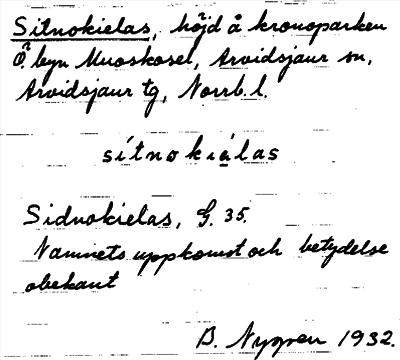 Sitnokielas, höjd å kronoparken
Ö. byn Muoskosel, Arvidsjaur sn,
Arvidsjaur tg, Norrb. l.
sítnokiälas
Sidnokielas, G. 35.
Namnets uppkomst och betydelse
obekant
B. Nygren 1932.